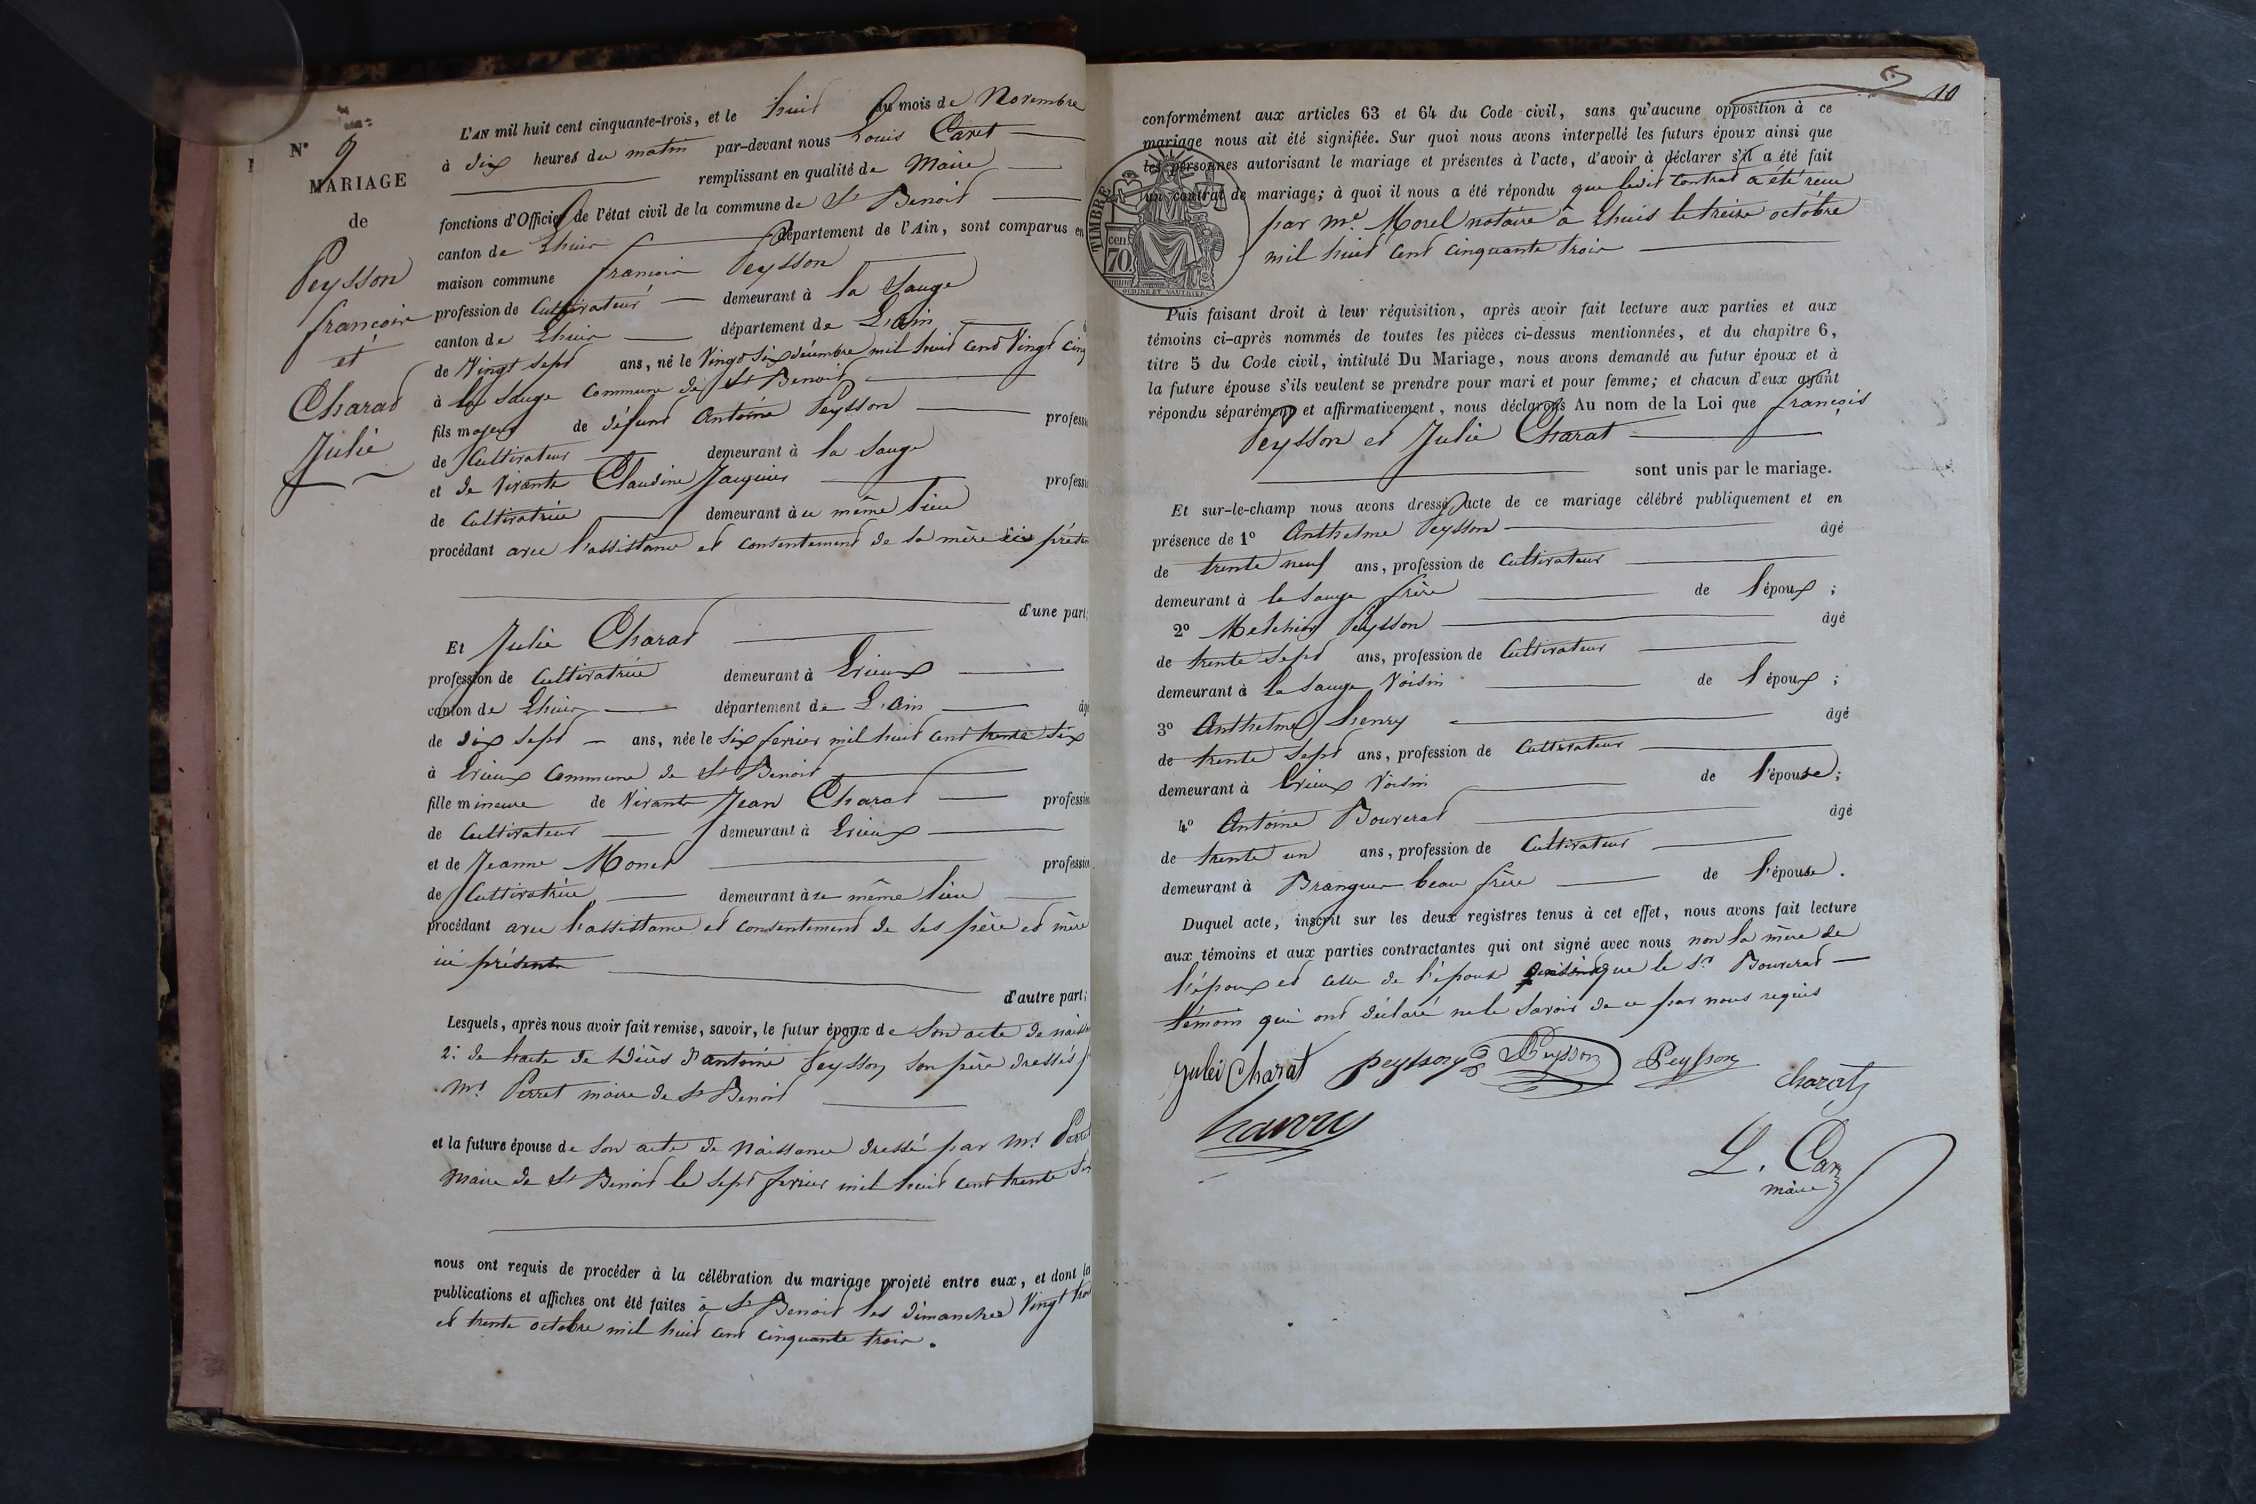 N° 9
MARIAGE
de
Peysson
françois
et
Charat
Julie
L'AN mil huit cent cinquante-trois, et le huit du mois de Novembre
à dix heures du matin par-devant nous Louis Caret
remplissant en qualité de Maire
fonctions d'Officier de l'état civil de la commune de St Benoit
canton de Lhuis département de l'Ain, sont comparus en
maison commune françois Peysson
profession de Cultivateur demeurant à la Sauge
canton de Lhuis département de L'ain
de Vingt sept ans, né le Vingt six décembre mil huit cent Vingt cinq
à la Sauge commune de St Benoit
fils majeur de défunt Antoine Peysson professi
de Cultivateur demeurant à la Sauge
et de Vivante Claudine Jacquier professi
de Cultivatrice demeurant à ce même lieu
procédant avec l'assistance et consentement de sa mère ici présen
d'une part;
Et Julie Charat
profession de Cultivatrice demeurant à Evieux
canton de Lhuis département de L'ain âgé
de dix sept ans, née le six fevrier mil huit cent trente six
à Evieux commune de St Benoit
fille mineure de Vivants Jean Charat profession
de Cultivateur demeurant à Evieux
et de Jeanne Monet profession
de Cultivatrice demeurant à ce même lieu
procédant avec l'assistance et consentement de ses père et mère
ici présents
d'autre part;
Lesquels, après nous avoir fait remise, savoir, le futur époux de Son acte de naiss
2° de l'acte de Décès d'antoine Peysson son père dressés p
Mr Perret maire de St Benoit
et la future épouse de son acte de Naissance dressé par Mr Perret
Maire de St Benoit le sept fevrier mil huit cent trente six
nous ont requis de procéder à la célébration du mariage projeté entre eux, et dont la
publications et affiches ont été faites à St Benoit les dimanches Vingt trois
et trente octobre mil huit cent cinquante trois.
10
conformément aux articles 63 et 64 du Code civil, sans qu'aucune opposition à ce
mariage nous ait été signifiée. Sur quoi nous avons interpellé les futurs époux ainsi que
les personnes autorisant le mariage et présentes à l'acte, d'avoir à déclarer s'il a été fait
un contrat de mariage; à quoi il nous a été répondu que ledit Contrat a été reçu
par Me Morel notaire à Lhuis le treize octobre
mil huit cent cinquante trois
TIMBRE
cen.
70.
Puis faisant droit à leur réquisition, après avoir fait lecture aux parties et aux
témoins ci-après nommés de toutes les pièces ci-dessus mentionnées, et du chapitre 6,
titre 5 du Code civil, intitulé Du Mariage, nous avons demandé au futur époux et à
la future épouse s'ils veulent se prendre pour mari et pour femme; et chacun d'eux ayant
répondu séparément et affirmativement, nous déclarons Au nom de la Loi que françois
Peysson et Julie Charat
sont unis par le mariage.
Et sur-le-champ nous avons dressé acte de ce mariage célébré publiquement et en
présence de 1° Anthelme Peysson âgé
de trente neuf ans, profession de Cultivateur
demeurant à la Sauge frère de l'époux;
2° Melchior Peysson âgé
de trente sept ans, profession de Cultivateur
demeurant à la Sauge Voisin de l'époux;
3° Anthelme henry âgé
de trente sept ans, profession de Cultivateur
demeurant à Evieux Voisin de l'épouse;
4° Antoine Bouverat âgé
de trente un ans, profession de Cultivateur
demeurant à Brangues beau frère de l'épouse.
Duquel acte, inscrit sur les deux registres tenus à cet effet, nous avons fait lecture
aux témoins et aux parties contractantes qui ont signé avec nous non la mère de
l'époux et celle de l'épouse que le Sr Bouverat
témoin qui ont déclaré ne le savoir de ce par nous requis
Julei Charat Peysson Peysson Peysson
Charat
L. Caret
maire